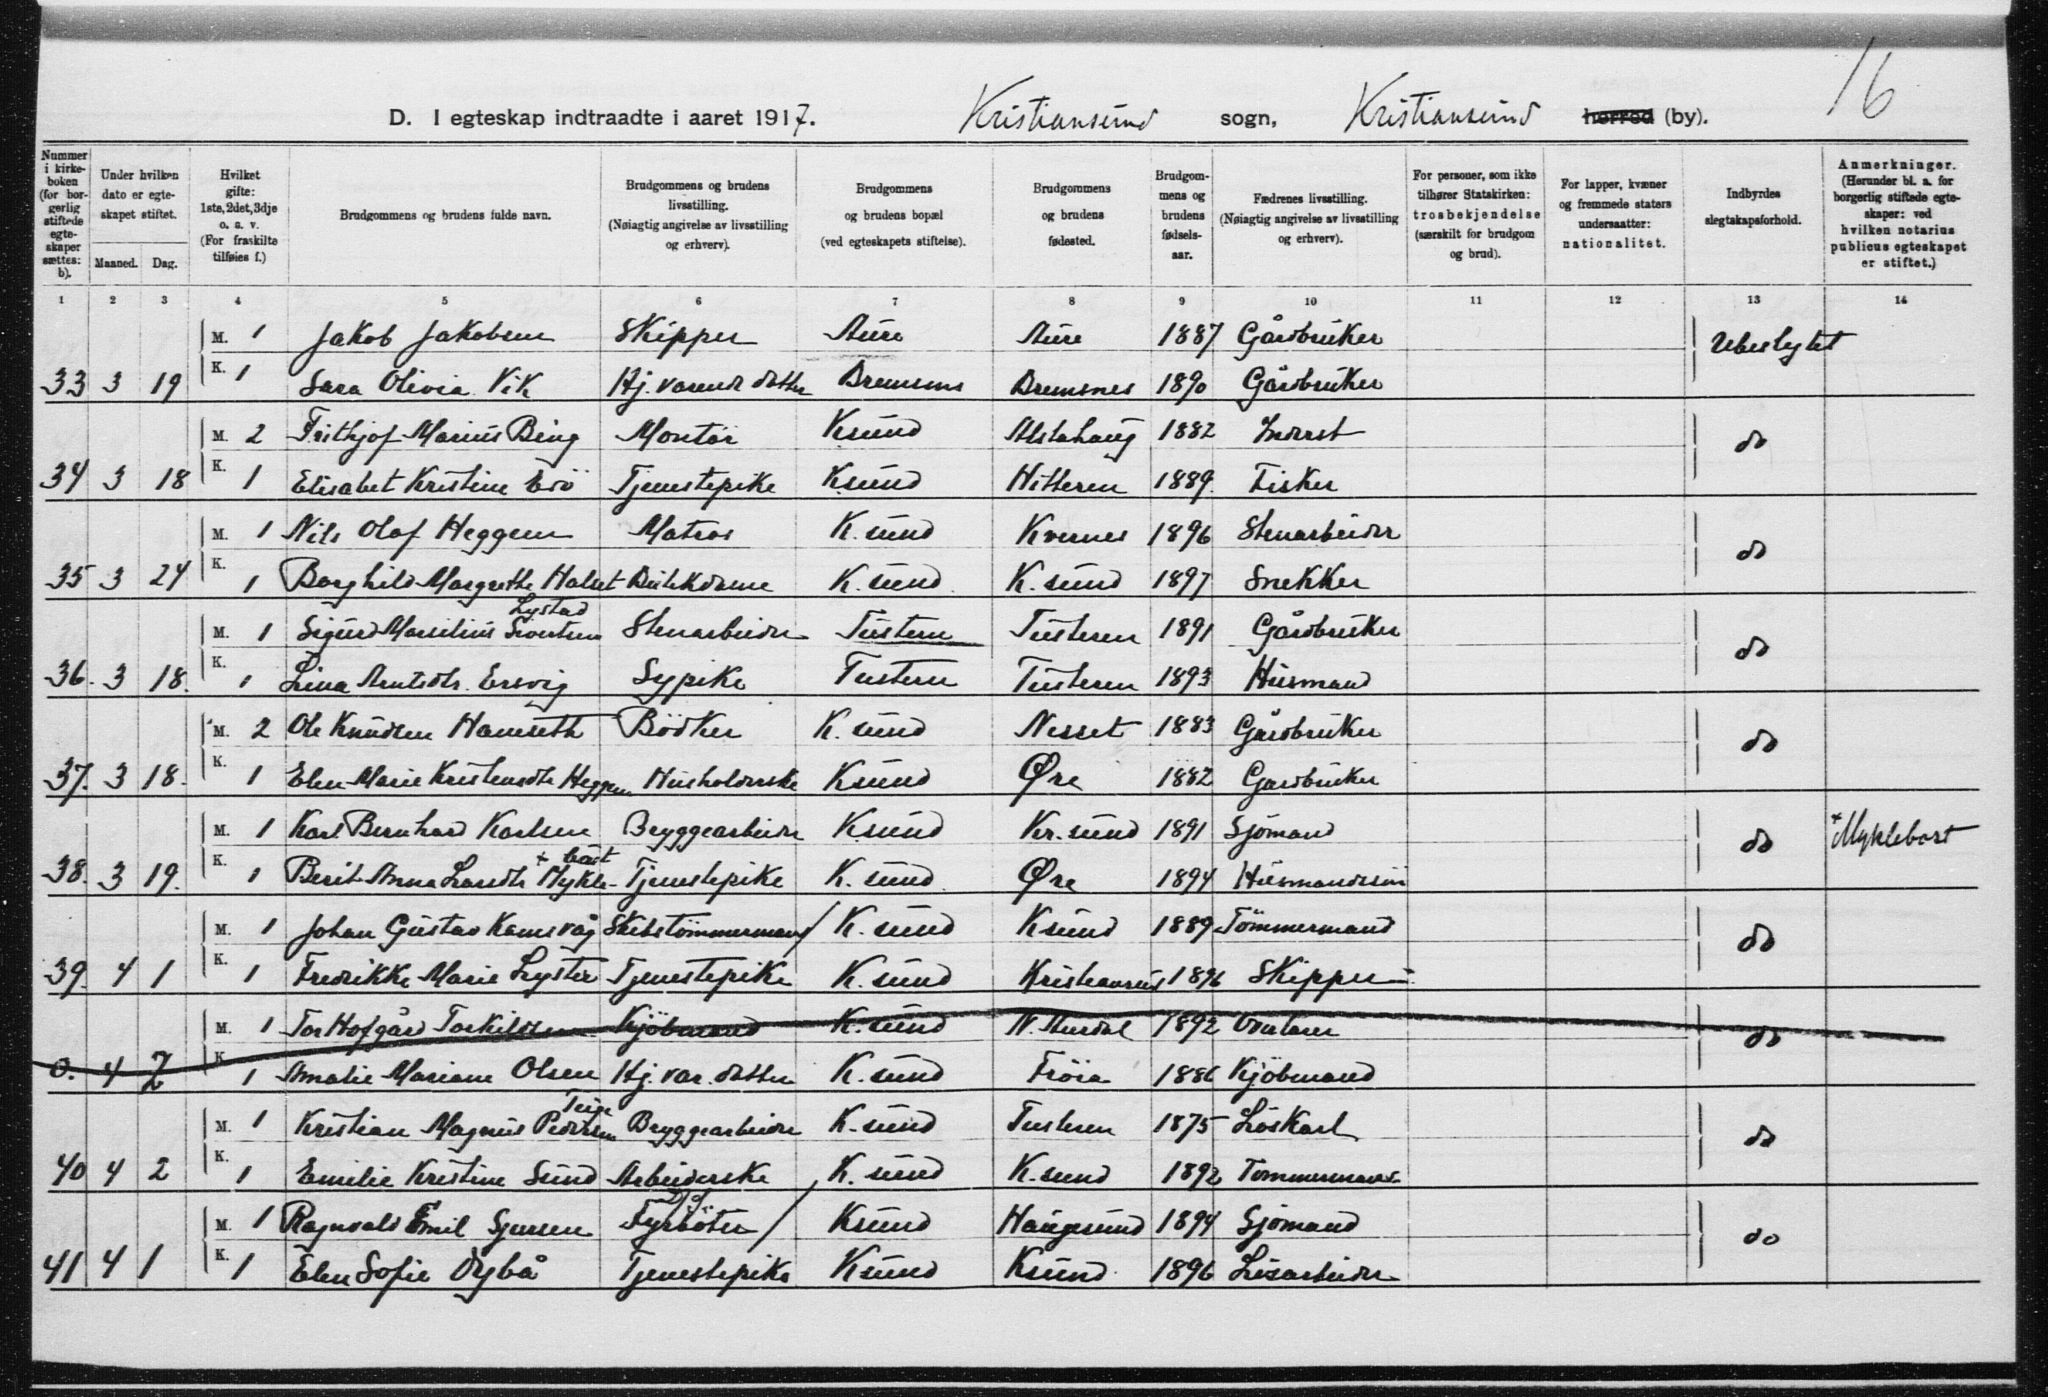 16
D. I egteskap indtraadte i aaret 1917. Kristiansund sogn, Kristiansund herred (by).
Nummer i kirkeboken (for borgerlig stiftede egteskaper sættes: b). Under hvilken dato er egteskapet stiftet. Maaned. Dag. Hvilket gifte: 1ste, 2det, 3dje o. s. v. (For fraskilte tilføies f.) Brudgommens og brudens fulde navn. Brudgommens og brudens livsstilling. (Nøiagtig angivelse av livsstilling og erhverv). Brudgommens og brudens bopæl (ved egteskapets stiftelse). Brudgommens og brudens fødested. Brudgommens og brudens fødselsaar. Fædrenes livsstilling. (Nøiagtig angivelse av livsstilling og erhverv). For personer, som ikke tilhører Statskirken: trosbekjendelse (særskilt for brudgom og brud). For lapper, kvæner og fremmede staters undersaatter: nationalitet. Indbyrdes slegtskapsforhold. Anmerkninger. (Herunder bl. a. for borgerlig stiftede egteskaper: ved hvilken notarius publicus egteskapet er stiftet.)
1 2 3 4 5 6 7 8 9 10 11 12 13 14
M. 1 Jakob Jakobsen Skipper Aure Aure 1887 Gårdbruker Ubeslegtet
33 3 19 K. 1 Sara Olivia Vik Hj. værende datter Bremsnes Bremsnes 1890 Gårdbruker
M. 2 Frithjof Marius Bing Montör Ksund Alstahaug 1882 do
34 3 18 K. 1 Elisabet Kristine Esö Tjenestepike Ksund Hitteren 1889. Fisker
M. 1 Nils Olaf Heggem Matros K. sund Kvernes 1896 Stenarbeider do
35 3 24 K. 1 Borghild Margrethe Halset Butikdame K. sund K. sund 1897 Snekker
Lystad
M. 1 Sigurd Marselius Sivertsen Stenarbeider Tustern Tusteren 1891 Gårdbruker do
36. 3 18. K. 1 Lina Arntsdtr. Ersvig Sypike Tustern Tusteren 1893 Husmand
M. 2 Ole Knudsen Hamseth Bödker K. sund Nesset 1883 Gårdbruker do
37. 3 18. K. 1 Elen Marie Kristensdtr Heggem Husholderske Ksund Øre 1882 Gardbruker
M. 1 Karl Bernhard Karlsen Bryggearbeider Ksund Kr. sund 1891 Sjömand do + Myklebost
+ böst
38. 3 19. K. 1 Berit Anna Larsdtr Mykle- Tjenestepike K. sund Øre 1894 Husmandssön
M. 1 Johan Gustav Ramsvåg Skibstömmermand / K. sund Ksund 1889 Tömmermand do
39. 4 1 K. 1 Fredrikke Marie Lyster Tjenestepike K. sund Kristiansund 1896 Skipper
M. 1 Tor Hofgård Torkildsen Kjöbmand K. sund N. Aurdal 1892 do
0. 4 2 K. 1 Amalie Mariane Olsen Hj. vær. datter K. sund Fröia 1886 Kjöbmand
M. 1 Kristian Magnus Pedersen Bryggearbeider K. sund Tusteren 1875 Löskarl do
40 4 2 K. 1 Emilie Kristine Sund Arbeiderske K. sund K. sund 1892 Tömmermand
M. 1 Ragnvald Emil Sjursen Fyrböter / Ksund Haugesund 1894 Sjömand do
41 4 1 K. 1 Elen Sofie Dybå Tjenestepike Ksund Ksund 1896 Lösarbeider